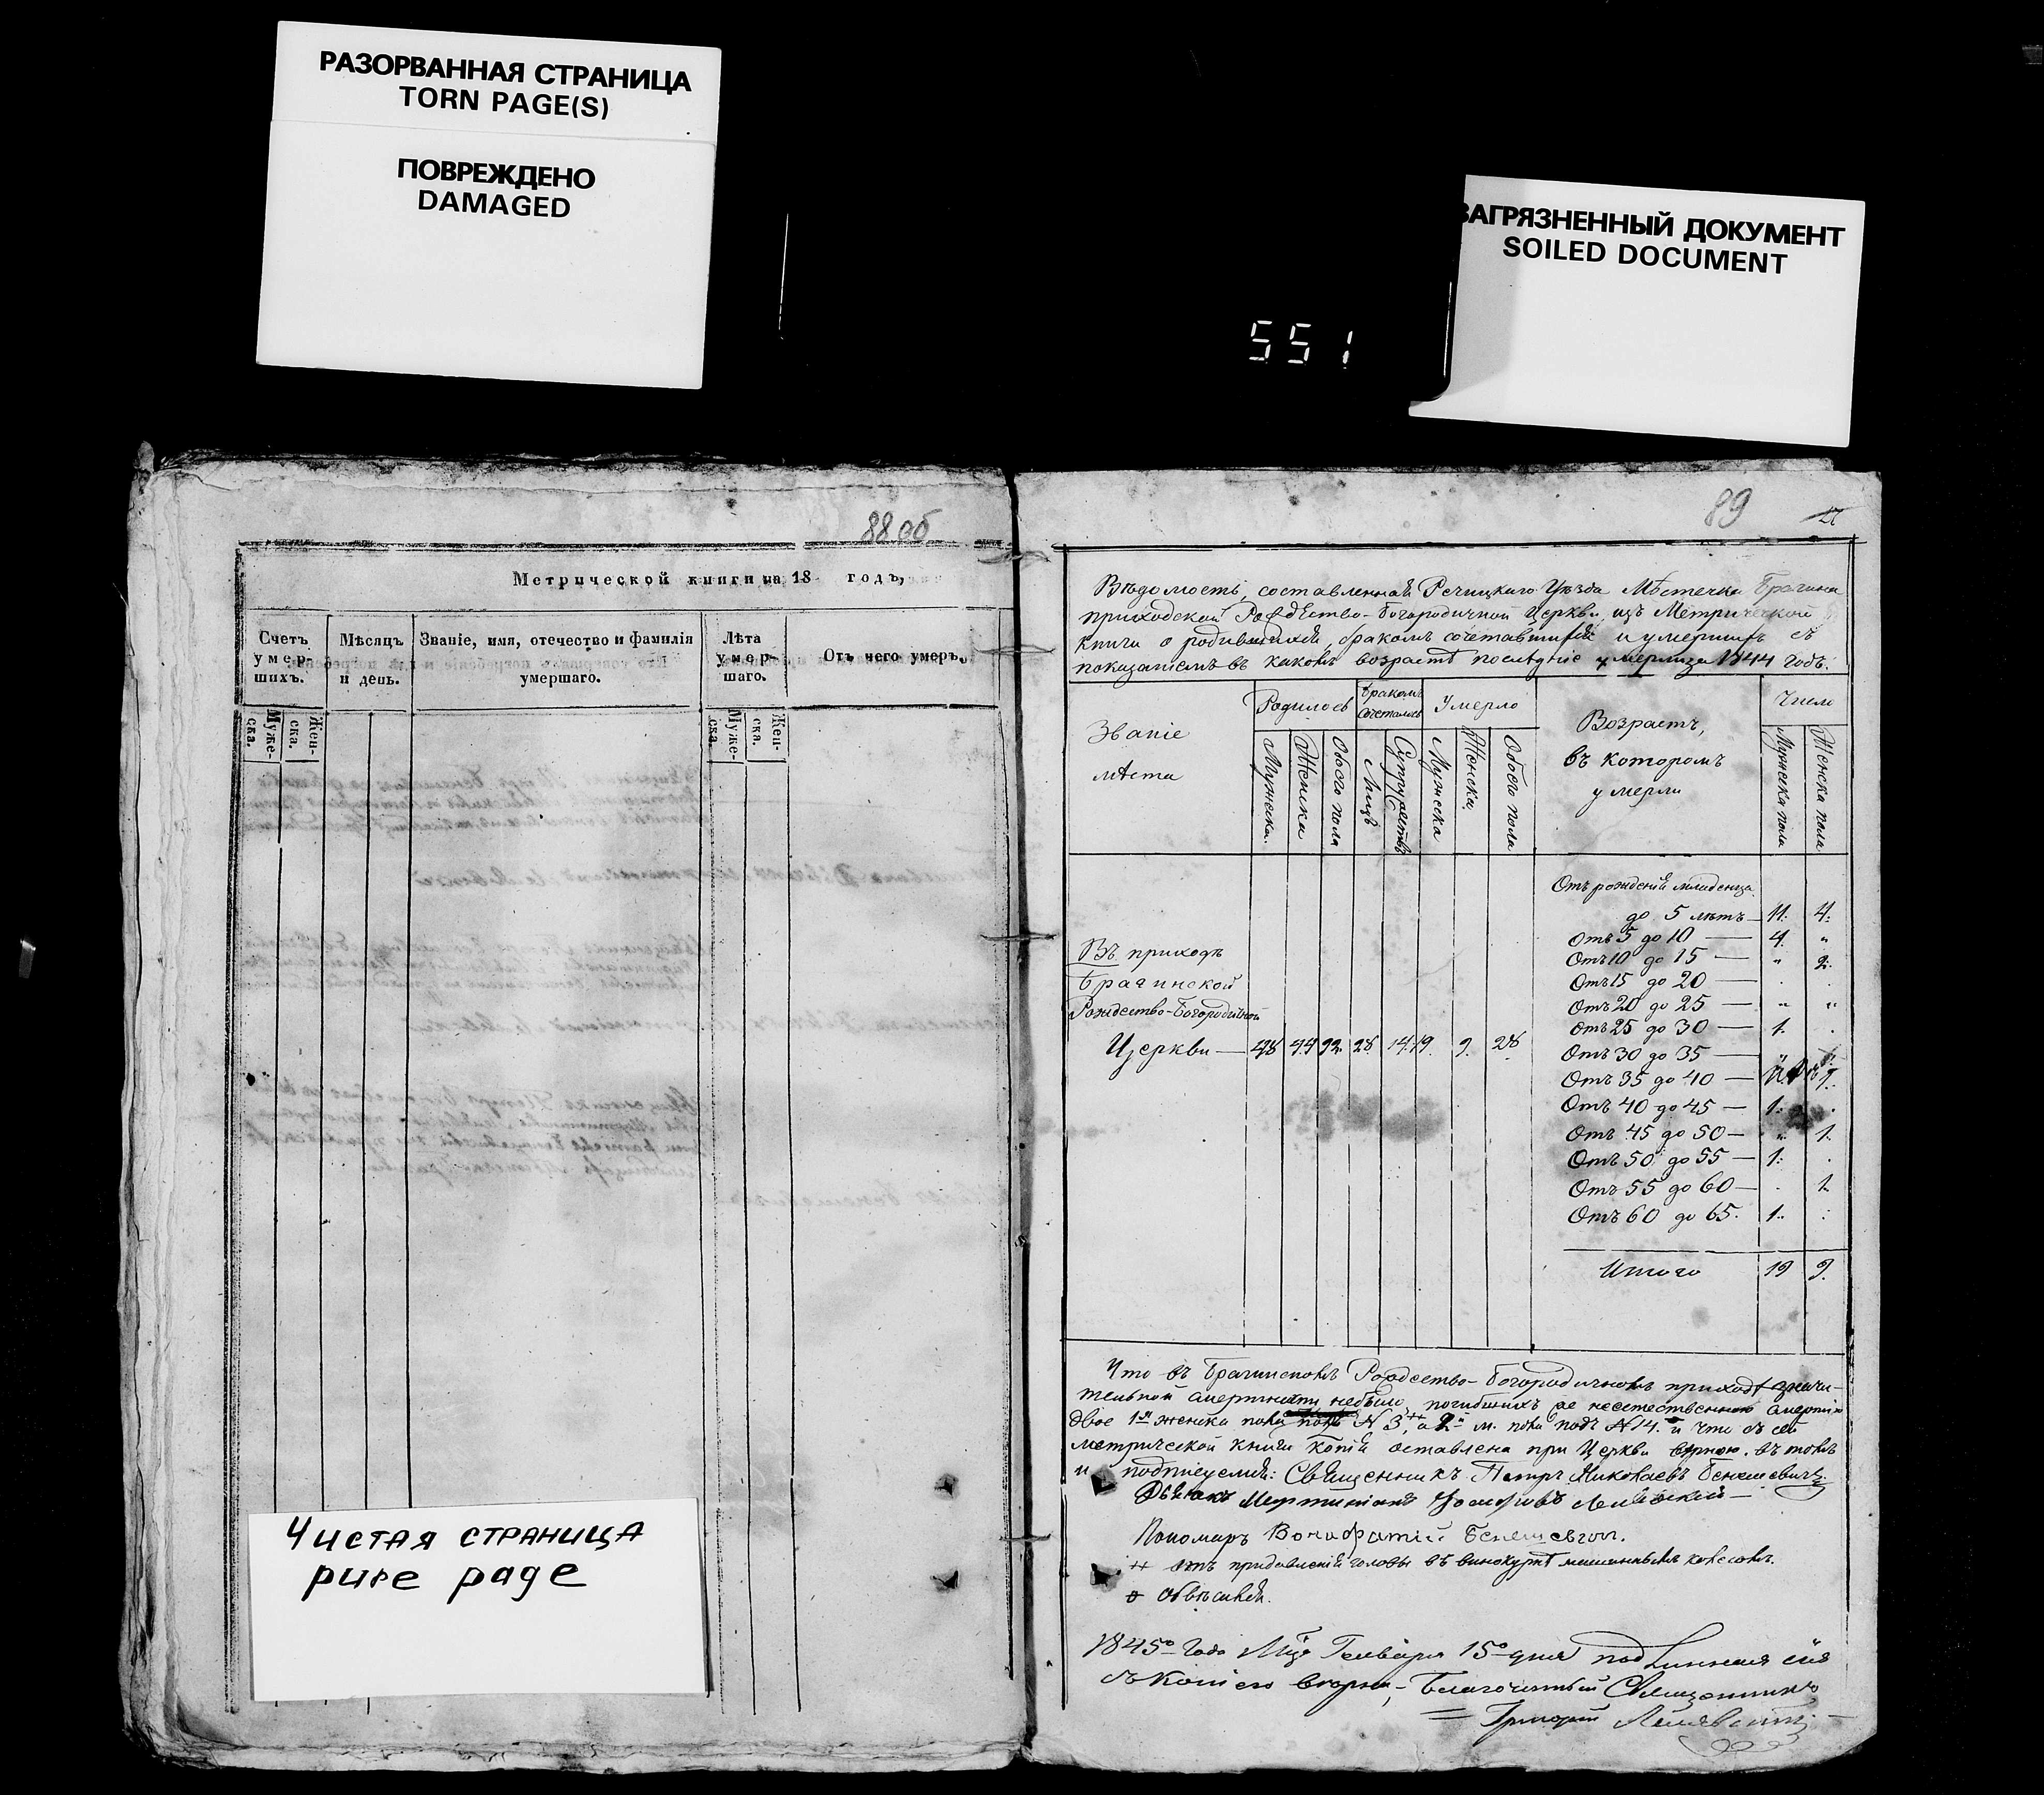 РАЗОРВАННАЯ СТРАНИЦА
TORN PAGE(S)
ПОВРЕЖДЕНО
DAMAGED
ЗАГРЯЗНЕННЫЙ ДОКУМЕНТ
SOILED DOCUMENT
551
88 об
Метрической книги на 18 годъ,
Счетъ умершихъ.
Мѣсяцъ и день.
Званіе, имя, отечество и фамилія умершаго.
Лѣта умершаго.
Отъ чего умеръ.
Мужеска.
Женска.
Мужеска.
Женска.
Чистая страница
pure page
89
Вѣдомость, составленная Речицкаго Уѣзда Мѣстечка Брагина
приходской Рождество-Богородичной Церкви, изъ Метрической
книги о родившихся, бракомъ сочетавшихся и умершихъ съ
показаніемъ въ какомъ возрастѣ послѣдніе умерли за 1844 годъ.
Званіе мѣста
Родилось
Бракомъ сочеталось
Умерло
Возрастъ, въ которомъ умерли
Число
Мужеска
Женска
Обоего пола
Лицъ
Супружествъ
Мужеска
Женска
Обоего пола
Мужеска пола
Женска пола
Отъ рожденія младенца
до 5 лѣтъ — 11. 4.
Отъ 5 до 10 — 4. „
Отъ 10 до 15 — „ 2.
Отъ 15 до 20 — . .
Отъ 20 до 25 — „ „
Отъ 25 до 30 — 1. .
Отъ 30 до 35 —
Отъ 35 до 40 —
Отъ 40 до 45 — 1. .
Отъ 45 до 50 — „ 1.
Отъ 50 до 55 — 1. .
Отъ 55 до 60 — . 1.
Отъ 60 до 65. 1. .
Итого 19 9.
Въ приходѣ
Брагинской
Рождество-Богородичной
Церкви — 48 44 92. 28. 14. 19. 9. 28
Что въ Брагинскомъ Рождество-Богородичномъ приходѣ значи-
тельной смертности небыло, погибшихъ же неестественною смертію
двое 1я женска пола подъ N 3, а 2й м. пола подъ N 14. и что съ сей
метрической книги копія оставлена при Церкви вѣрною. въ томъ
и подписуемся: Священникъ Петръ Николаевъ Бенешевичъ.
Дьячокъ
Пономарь Вонифатій Бенешевичъ.
++ отъ придавленія головы въ винокурнѣ машиннымъ колесомъ.
1845го Года Мца Генваря 15го дня подлинная сія
съ копіею вѣрна, Благочинный Священникъ
Григорій